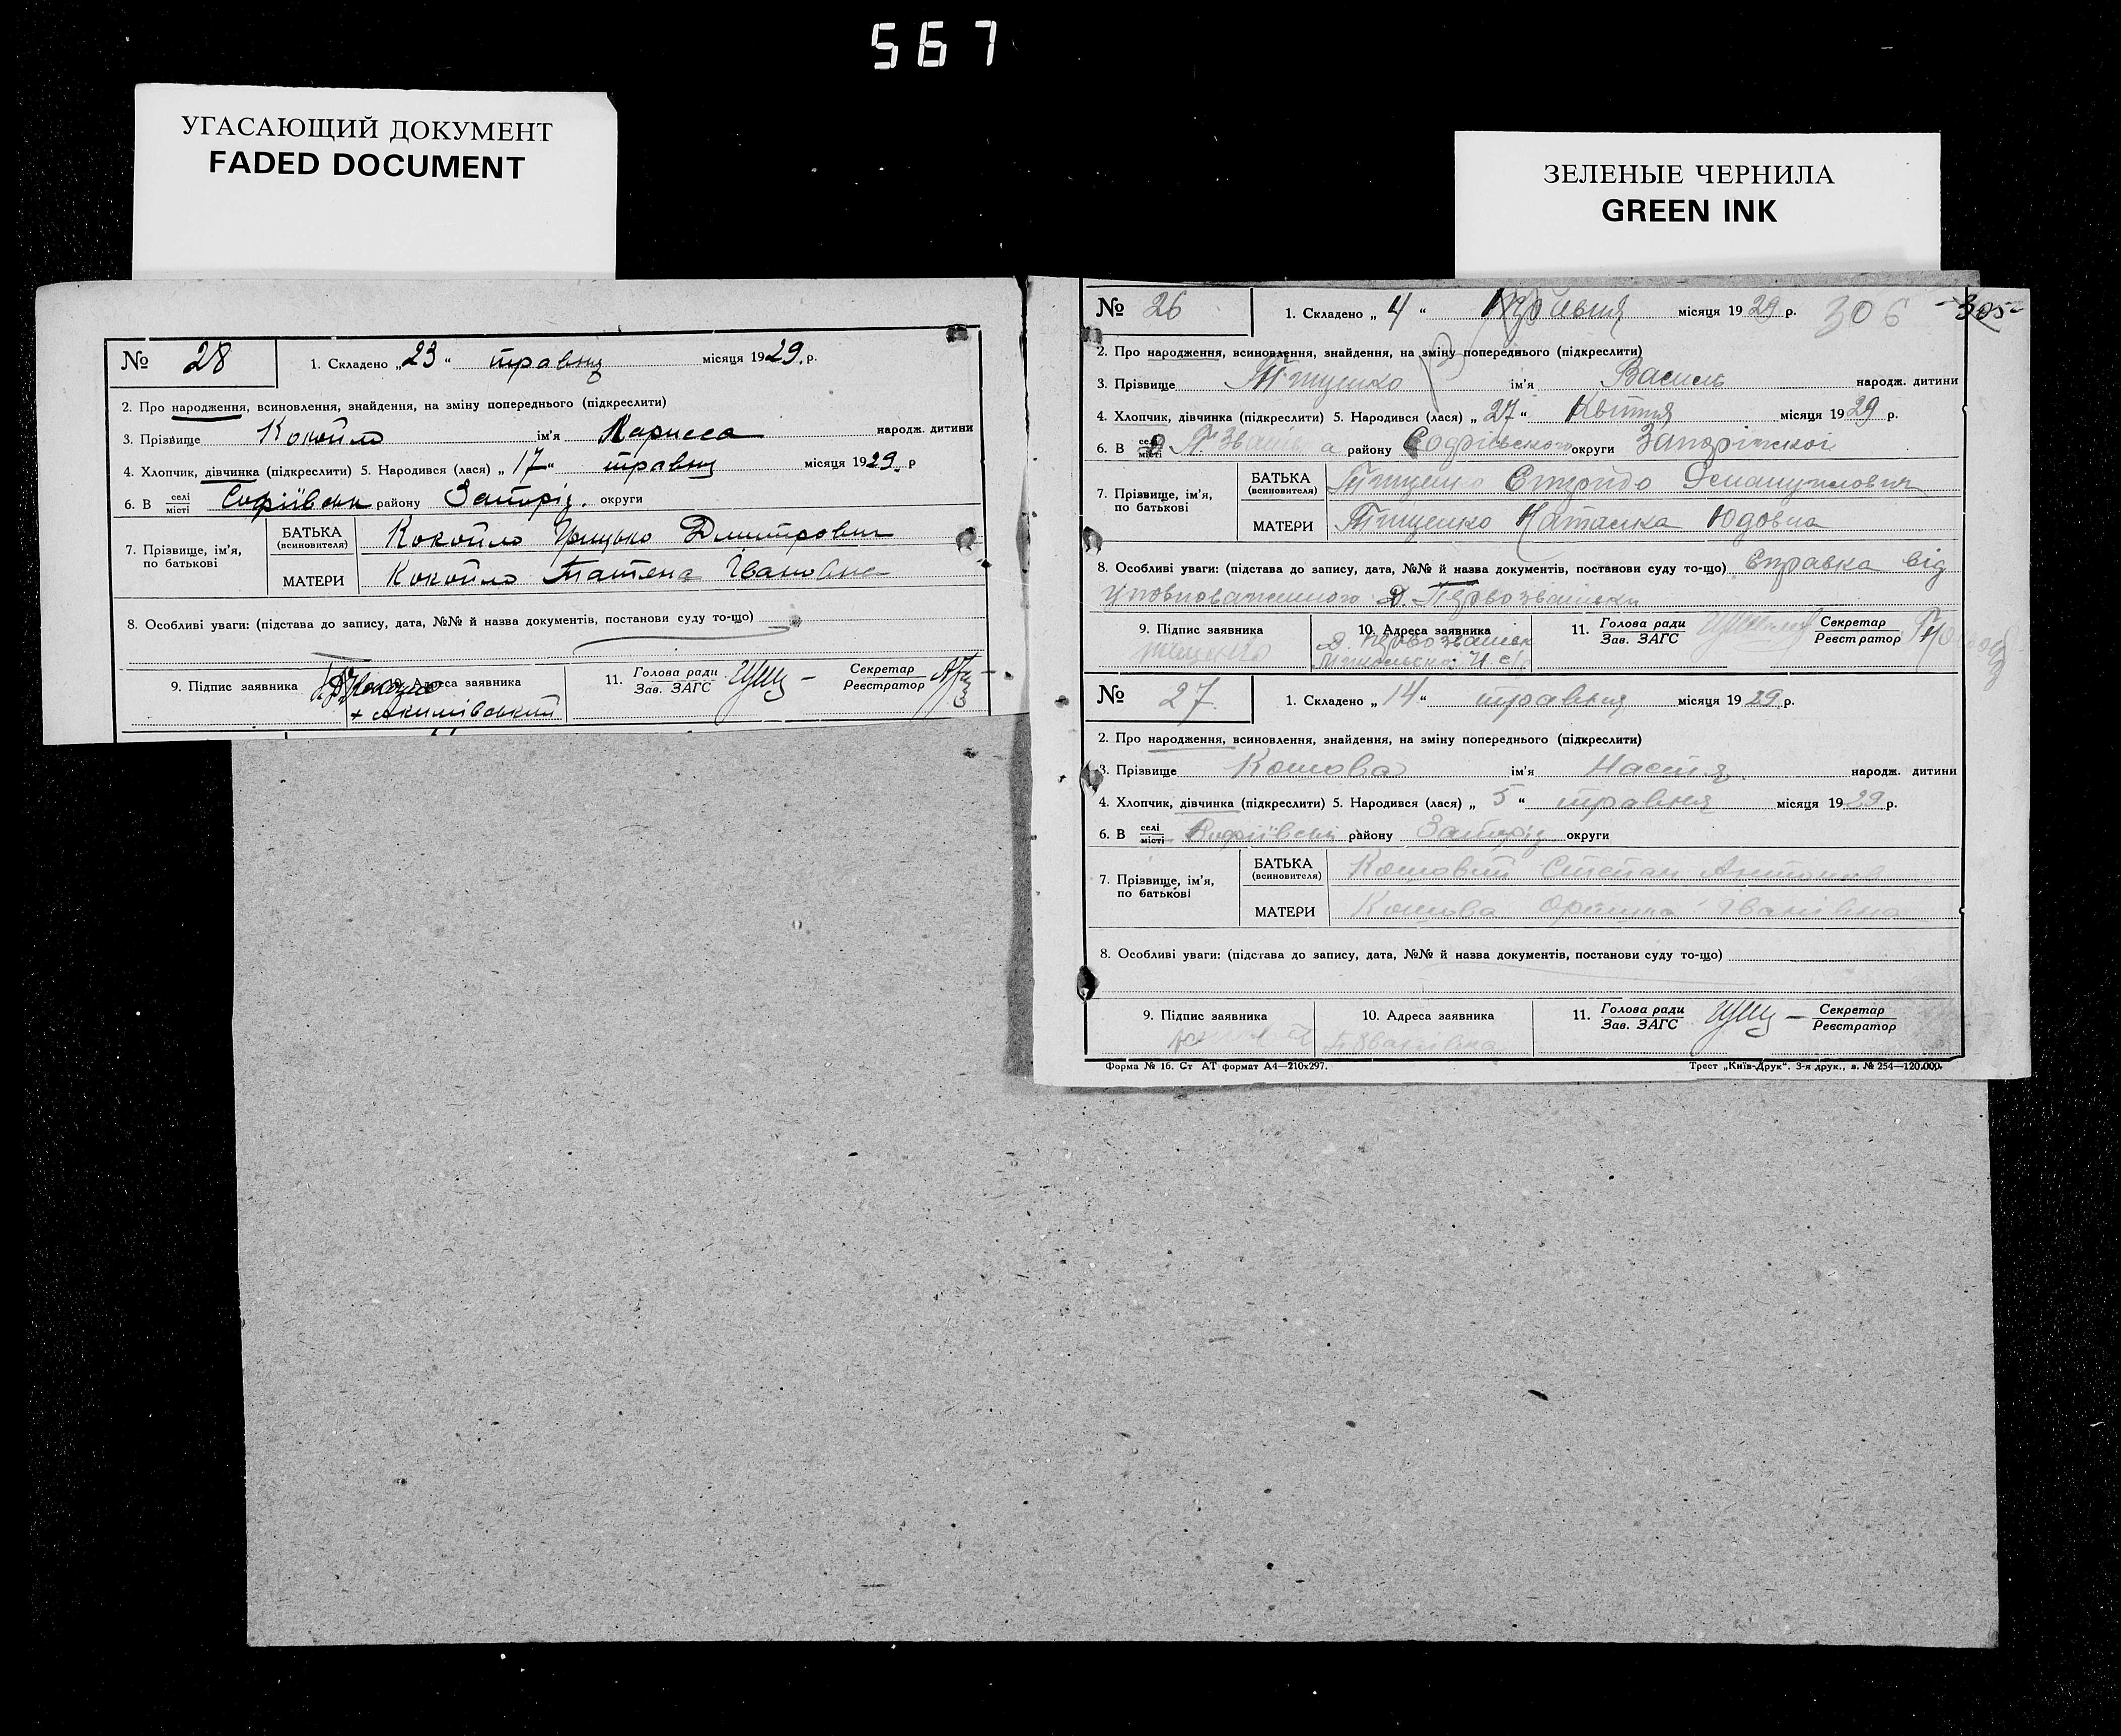 567
УГАСАЮЩИЙ ДОКУМЕНТ
FADED DOCUMENT
ЗЕЛЕНЫЕ ЧЕРНИЛА
GREEN INK
№ 28
1. Складено „23“ травня місяця 1929. р.
2. Про народження, всиновлення, знайдення, на зміну попереднього (підкреслити)
3. Прізвище Кокойло ім'я Лариса народж. дитини
4. Хлопчик, дівчинка (підкреслити) 5. Народився (лася) „17“ травня місяця 1929. р
6. В селі місті Софіївськ району Запоріз. округи
7. Прізвище, ім'я, по батькові
БАТЬКА (всиновителя) Кокойло Грицько Дмитрович
МАТЕРИ Кокойло Татяна Івановна
8. Особливі уваги: (підстава до запису, дата, №№ й назва документів, постанови суду то-що)
9. Підпис заявника
10. Адреса заявника
11. Голова ради Зав. ЗАГС
Секретар Реєстратор
№ 26
1. Складено „4“ травня місяця 1929 р. 306 305
2. Про народження, всиновлення, знайдення, на зміну попереднього (підкреслити)
3. Прізвище Тищенко ім'я Василь народж. дитини
4. Хлопчик, дівчинка (підкреслити) 5. Народився (лася) „27“ Квітня місяця 1929 р.
6. В селі місті району Софіївського округи Запоріжської
7. Прізвище, ім'я, по батькові
БАТЬКА (всиновителя) Тищенко
МАТЕРИ Тищенко Наталка Юдовна
8. Особливі уваги: (підстава до запису, дата, №№ й назва документів, постанови суду то-що) Справка від
уповноваженного Д. Первозванівки
9. Підпис заявника Тищенко
10. Адреса заявника
11. Голова ради Зав. ЗАГС
Секретар Реєстратор
№ 27
1. Складено „14“ травня місяця 1929 р.
2. Про народження, всиновлення, знайдення, на зміну попереднього (підкреслити)
3. Прізвище Кошова ім'я Настя народж. дитини
4. Хлопчик, дівчинка (підкреслити) 5. Народився (лася) „5“ травня місяця 1929 р.
6. В селі місті Софіївськ району Запоріз округи
7. Прізвище, ім'я, по батькові
БАТЬКА (всиновителя) Кошовий Степан
МАТЕРИ Кошова Оришка Іванівна
8. Особливі уваги: (підстава до запису, дата, №№ й назва документів, постанови суду то-що)
9. Підпис заявника
10. Адреса заявника
11. Голова ради Зав. ЗАГС
Секретар Реєстратор
Форма № 16. Ст АТ формат А4—210x297.
Трест „Київ-Друк“. 3-я друк., з. № 254—120.000.